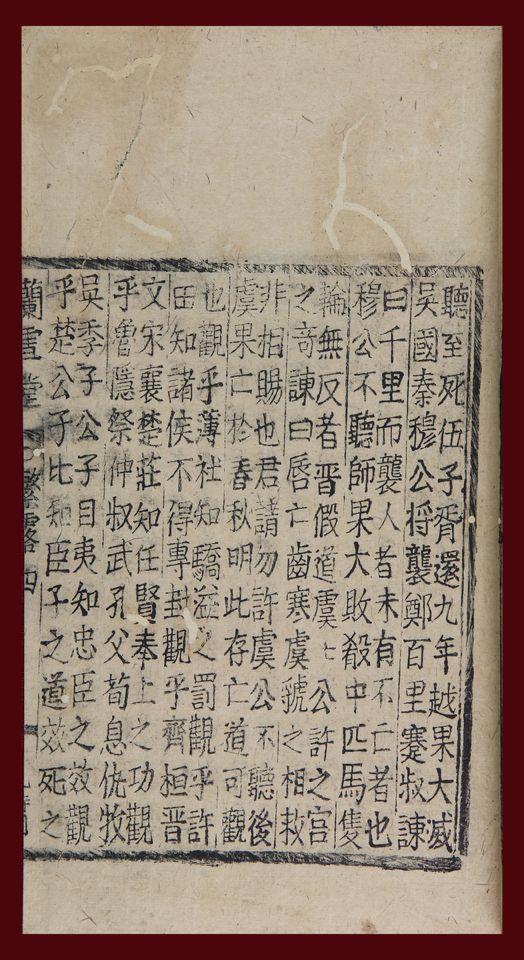 聽至死伍子胥還九年越果大滅
吳國秦穆公將襲鄭百里蹇叔諫
曰千里而襲人者未有不亡者也
穆公不聽師果大敗殽中匹馬隻
輪無反者晉假道虞〻公許之宮
之竒諫曰唇亡齒寒虞虢之相救
非相賜也君請勿許虞公不聽後
虞果亡於春秋明此存亡道可觀
也觀乎薄社知驕溢之罰觀乎許
田知諸侯不得專封觀乎齊桓晉
文宋襄楚莊知任賢奉上之功觀
乎魯隱祭仲叔武孔父荀息仇牧
吳季子公子目夷知忠臣之效觀
乎楚公子比知臣子之道效死之
蘭雪堂 繁露四